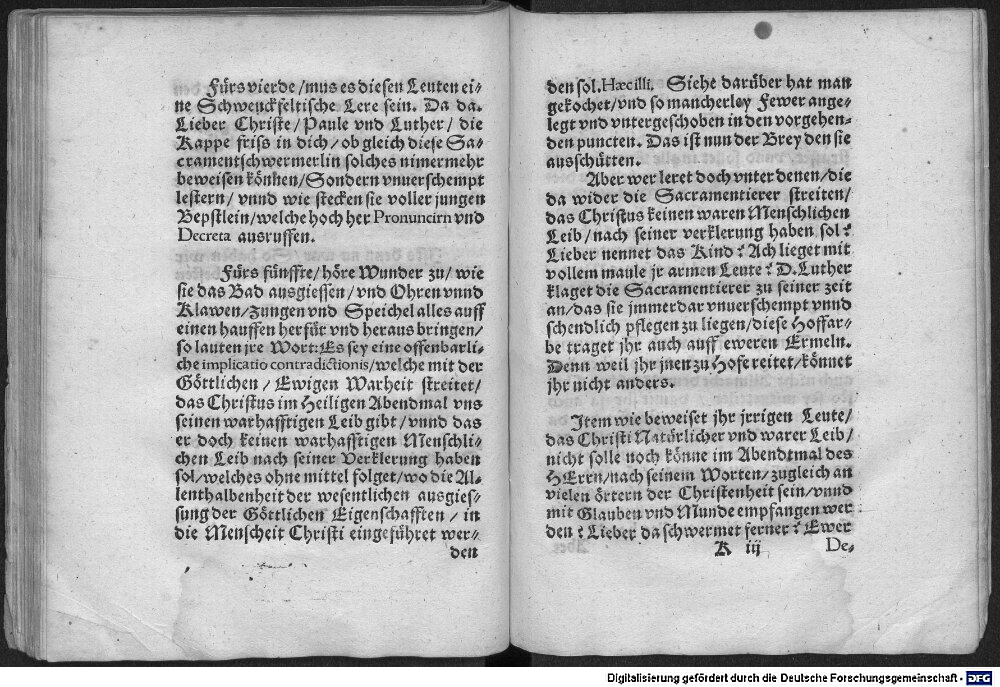 Fürs vierde / mus es diesen Leuten ei-
ne Schwenckfeltische Lere sein. Da da.
Lieber Christe / Paule vnd Luther / die
Kappe friss in dich / ob gleich diese Sa-
cramentschwermerlin solches nimermehr
beweisen können / Sondern vnuerschempt
lestern / vnnd wie stecken sie voller jungen
Bepstlein / welche hoch her Pronuncirn vnd
Decreta ausruffen.
Fürs fünffte / höre Wunder zu / wie
sie das Bad ausgiessen / vnd Ohren vnnd
Klawen / zungen vnd Speichel alles auff
einen hauffen herfür vnd heraus bringen /
so lauten jre Wort: Es sey eine offenbarli-
che implicatio contradictionis / welche mit der
Göttlichen / Ewigen Warheit streitet /
das Christus im Heiligen Abendmal vns
seinen warhafftigen Leib gibt / vnnd das
er doch keinen warhafftigen Menschli-
chen Leib nach seiner Verklerung haben
sol / welches ohne mittel folget / wo die Al-
lenthalbenheit der wesentlichen ausgies-
sung der Göttlichen Eigenschafften / in
die Menscheit Christi eingeführet wer-
den
den sol. Hæc illi. Siehe darüber hat man
gekochet / vnd so mancherley Fewer ange-
legt vnd vntergeschoben in den vorgehen-
den puncten. Das ist nun der Brey den sie
ausschütten.
Aber wer leret doch vnter denen / die
da wider die Sacramentierer streiten /
das Christus keinen waren Menschlichen
Leib / nach seiner verklerung haben sol?
Lieber nennet das Kind? Ach lieget mit
vollem maule jr armen Leute? D. Luther
klaget die Sacramentierer zu seiner zeit
an / das sie jmmerdar vnuerschempt vnnd
schendlich pflegen zu liegen / diese Hoffar-
be traget jhr auch auff eweren Ermeln.
Denn weil jhr jnen zu Hofe reitet / könnet
jhr nicht anders.
Item wie beweiset jhr jrrigen Leute /
das Christi Natürlicher vnd warer Leib /
nicht solle noch könne im Abendtmal des
HErrn / nach seinem Worten / zugleich an
vielen örtern der Christenheit sein / vnnd
mit Glauben vnd Munde empfangen wer
den? Lieber da schwermet ferner? Ewer
K iij De-
Digitalisierung gefördert durch die Deutsche Forschungsgemeinschaft - DFG